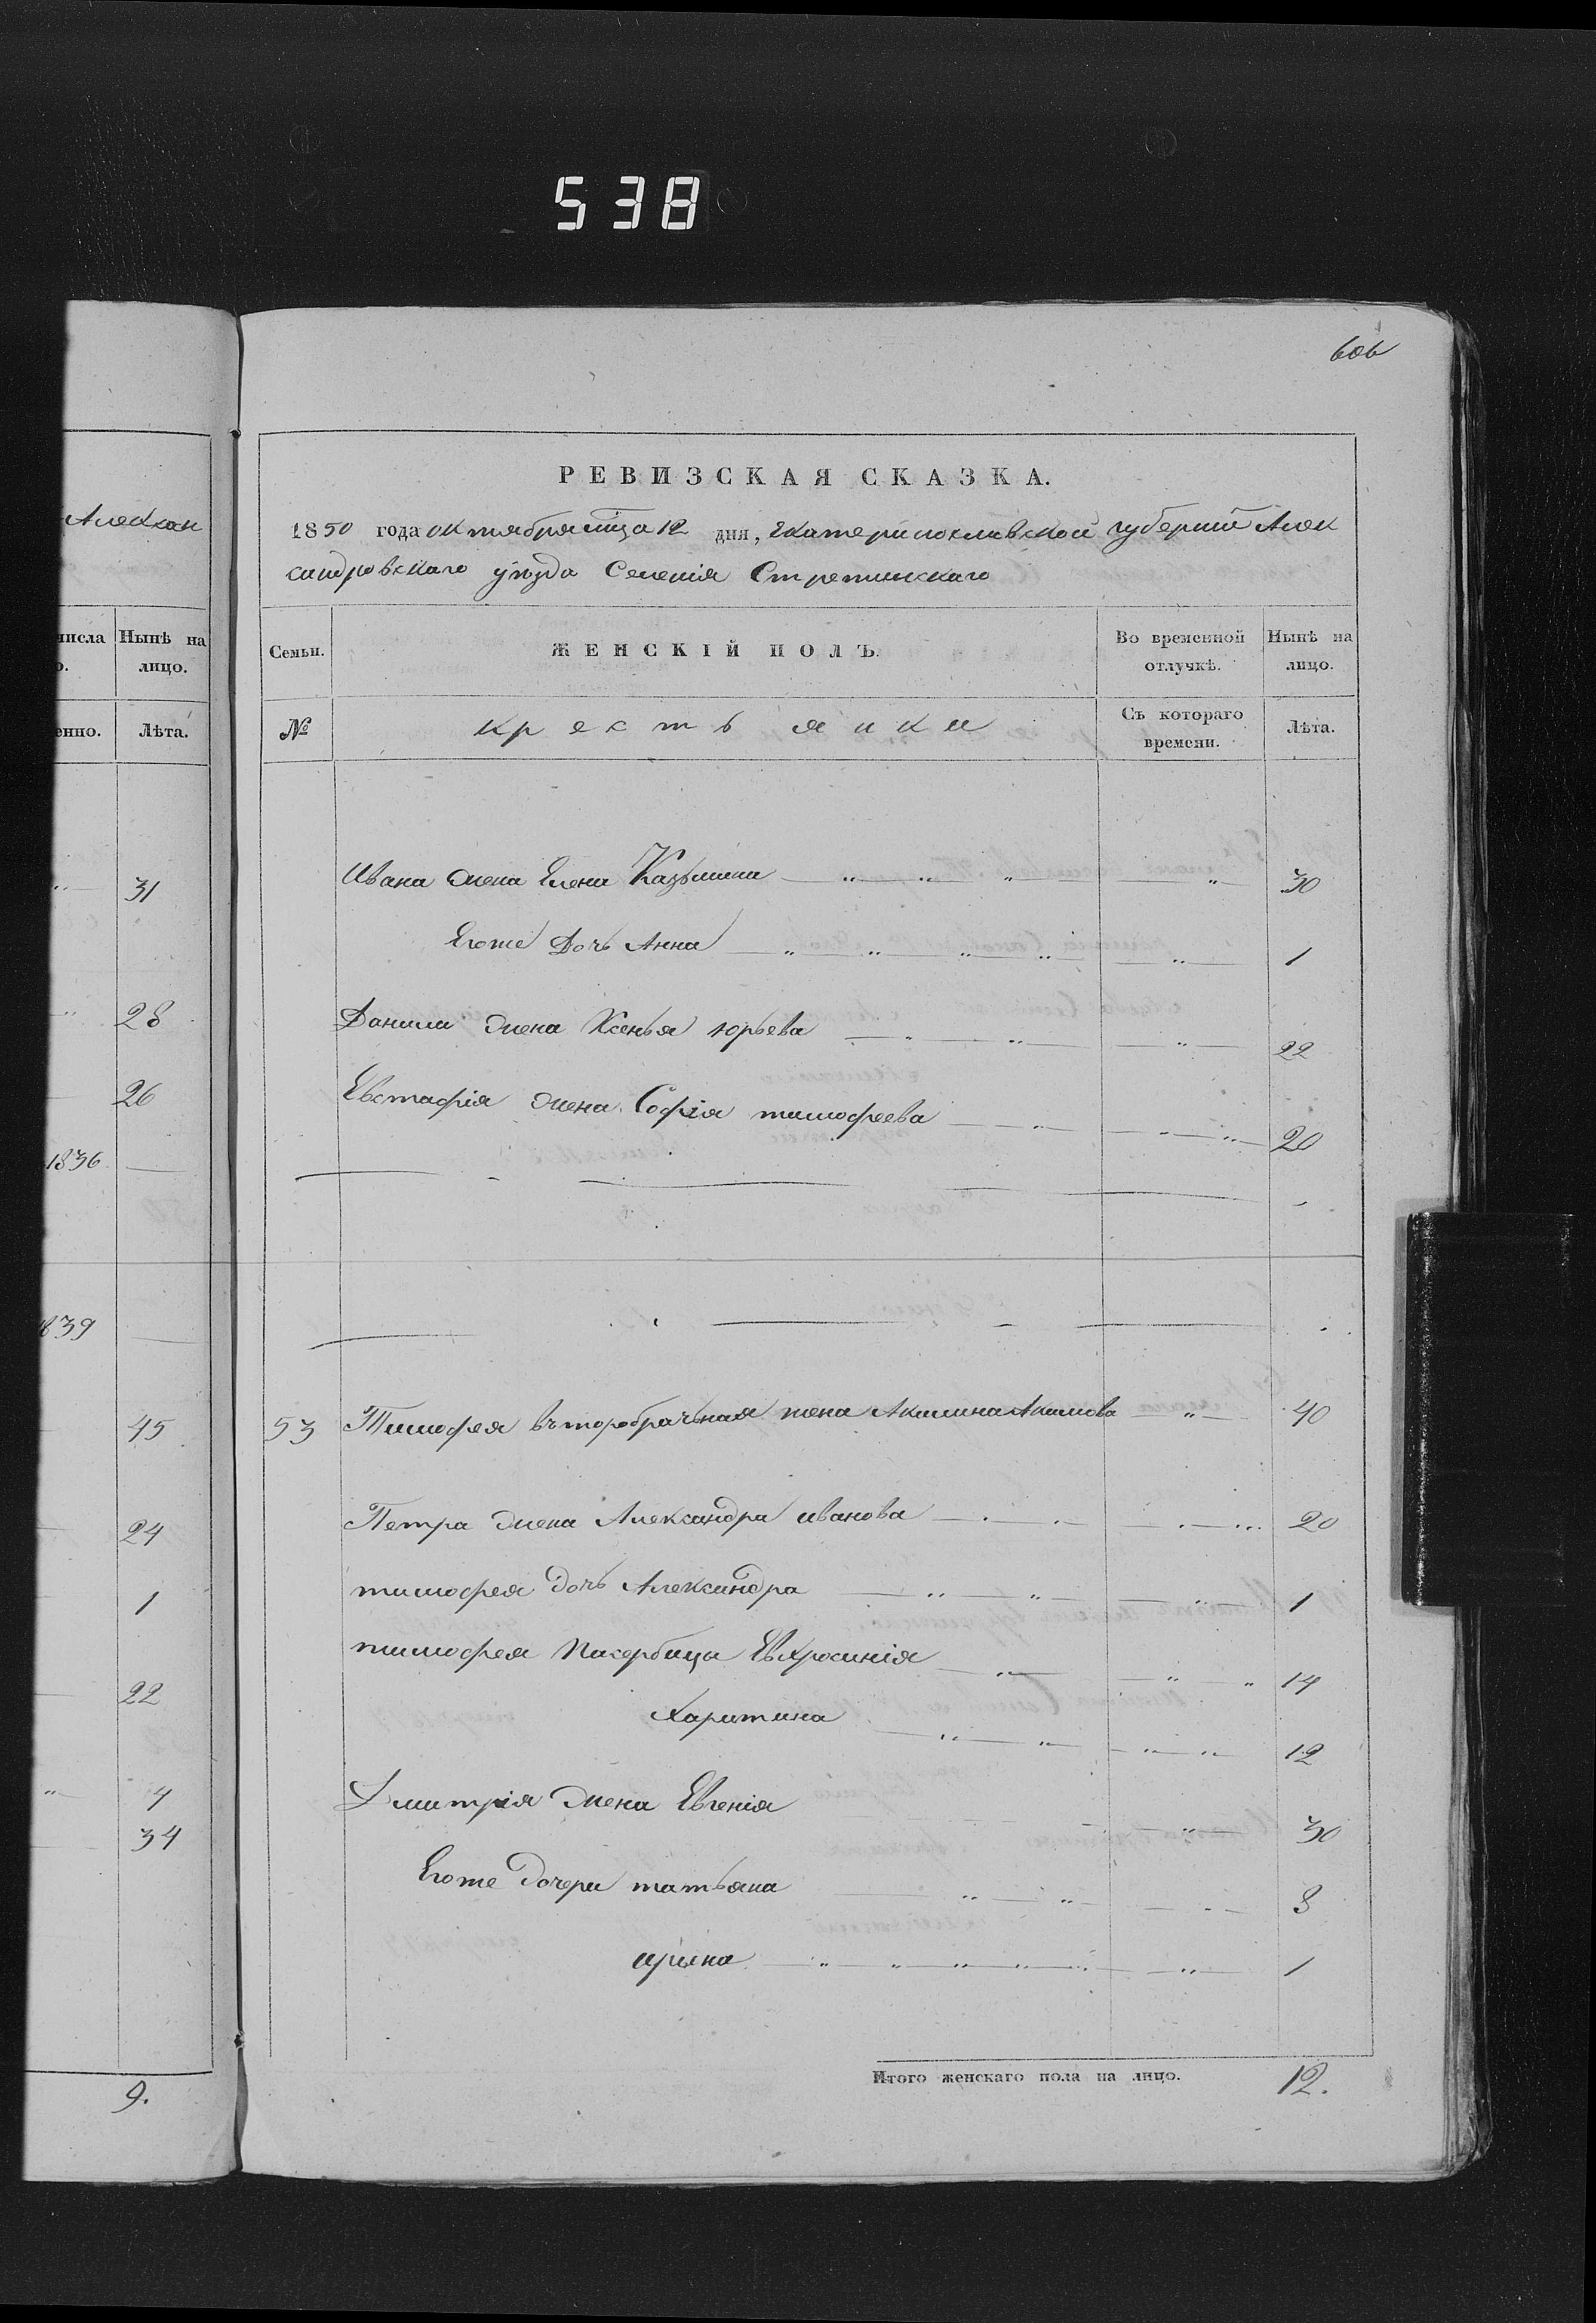 538
606
Алексан
числа
Нынѣ на
лицо.
енно.
Лѣта.
31
28
26
1836
839
45
24
1
22
4
34
9.
РЕВИЗСКАЯ СКАЗКА.
1850 года октября мца 12 дня, Екатеринославской губерніи Алек
сандровскаго уѣзда Селенія Стретинскаго
Семьи.
ЖЕНСКІЙ ПОЛЪ.
Во временной
отлучкѣ.
Нынѣ на
лицо.
№
крестьянки
Съ котораго
времени.
Лѣта.
Ивана жена Елена Казьмина — „ — „ „ — „ — 30
Егоже Дочь Анна — „ — „ — „ — „ — „ — 1
Данила жена Ксенья юрьева — „ — „ — „ — 22
Евстафія жена Софія тимофеева — „ — „ — 20
53 Тимофея въторобрачьная жена Акилина Акимова „ — 40
Петра жена Александра иванова — 20
тимофея дочь Александра — „ — „ — „ — 1
тимофея Пасербица Евхросинія — „ — „ „ 14
Харитина — „ — „ — „ „ — 12
Дмитрія жена Евгенія — „ — 30
Егоже Дочери татьяна — „ — „ — 8
ирина — „ „ „ „ — „ — 1
Итого женскаго пола на лицо. 12.